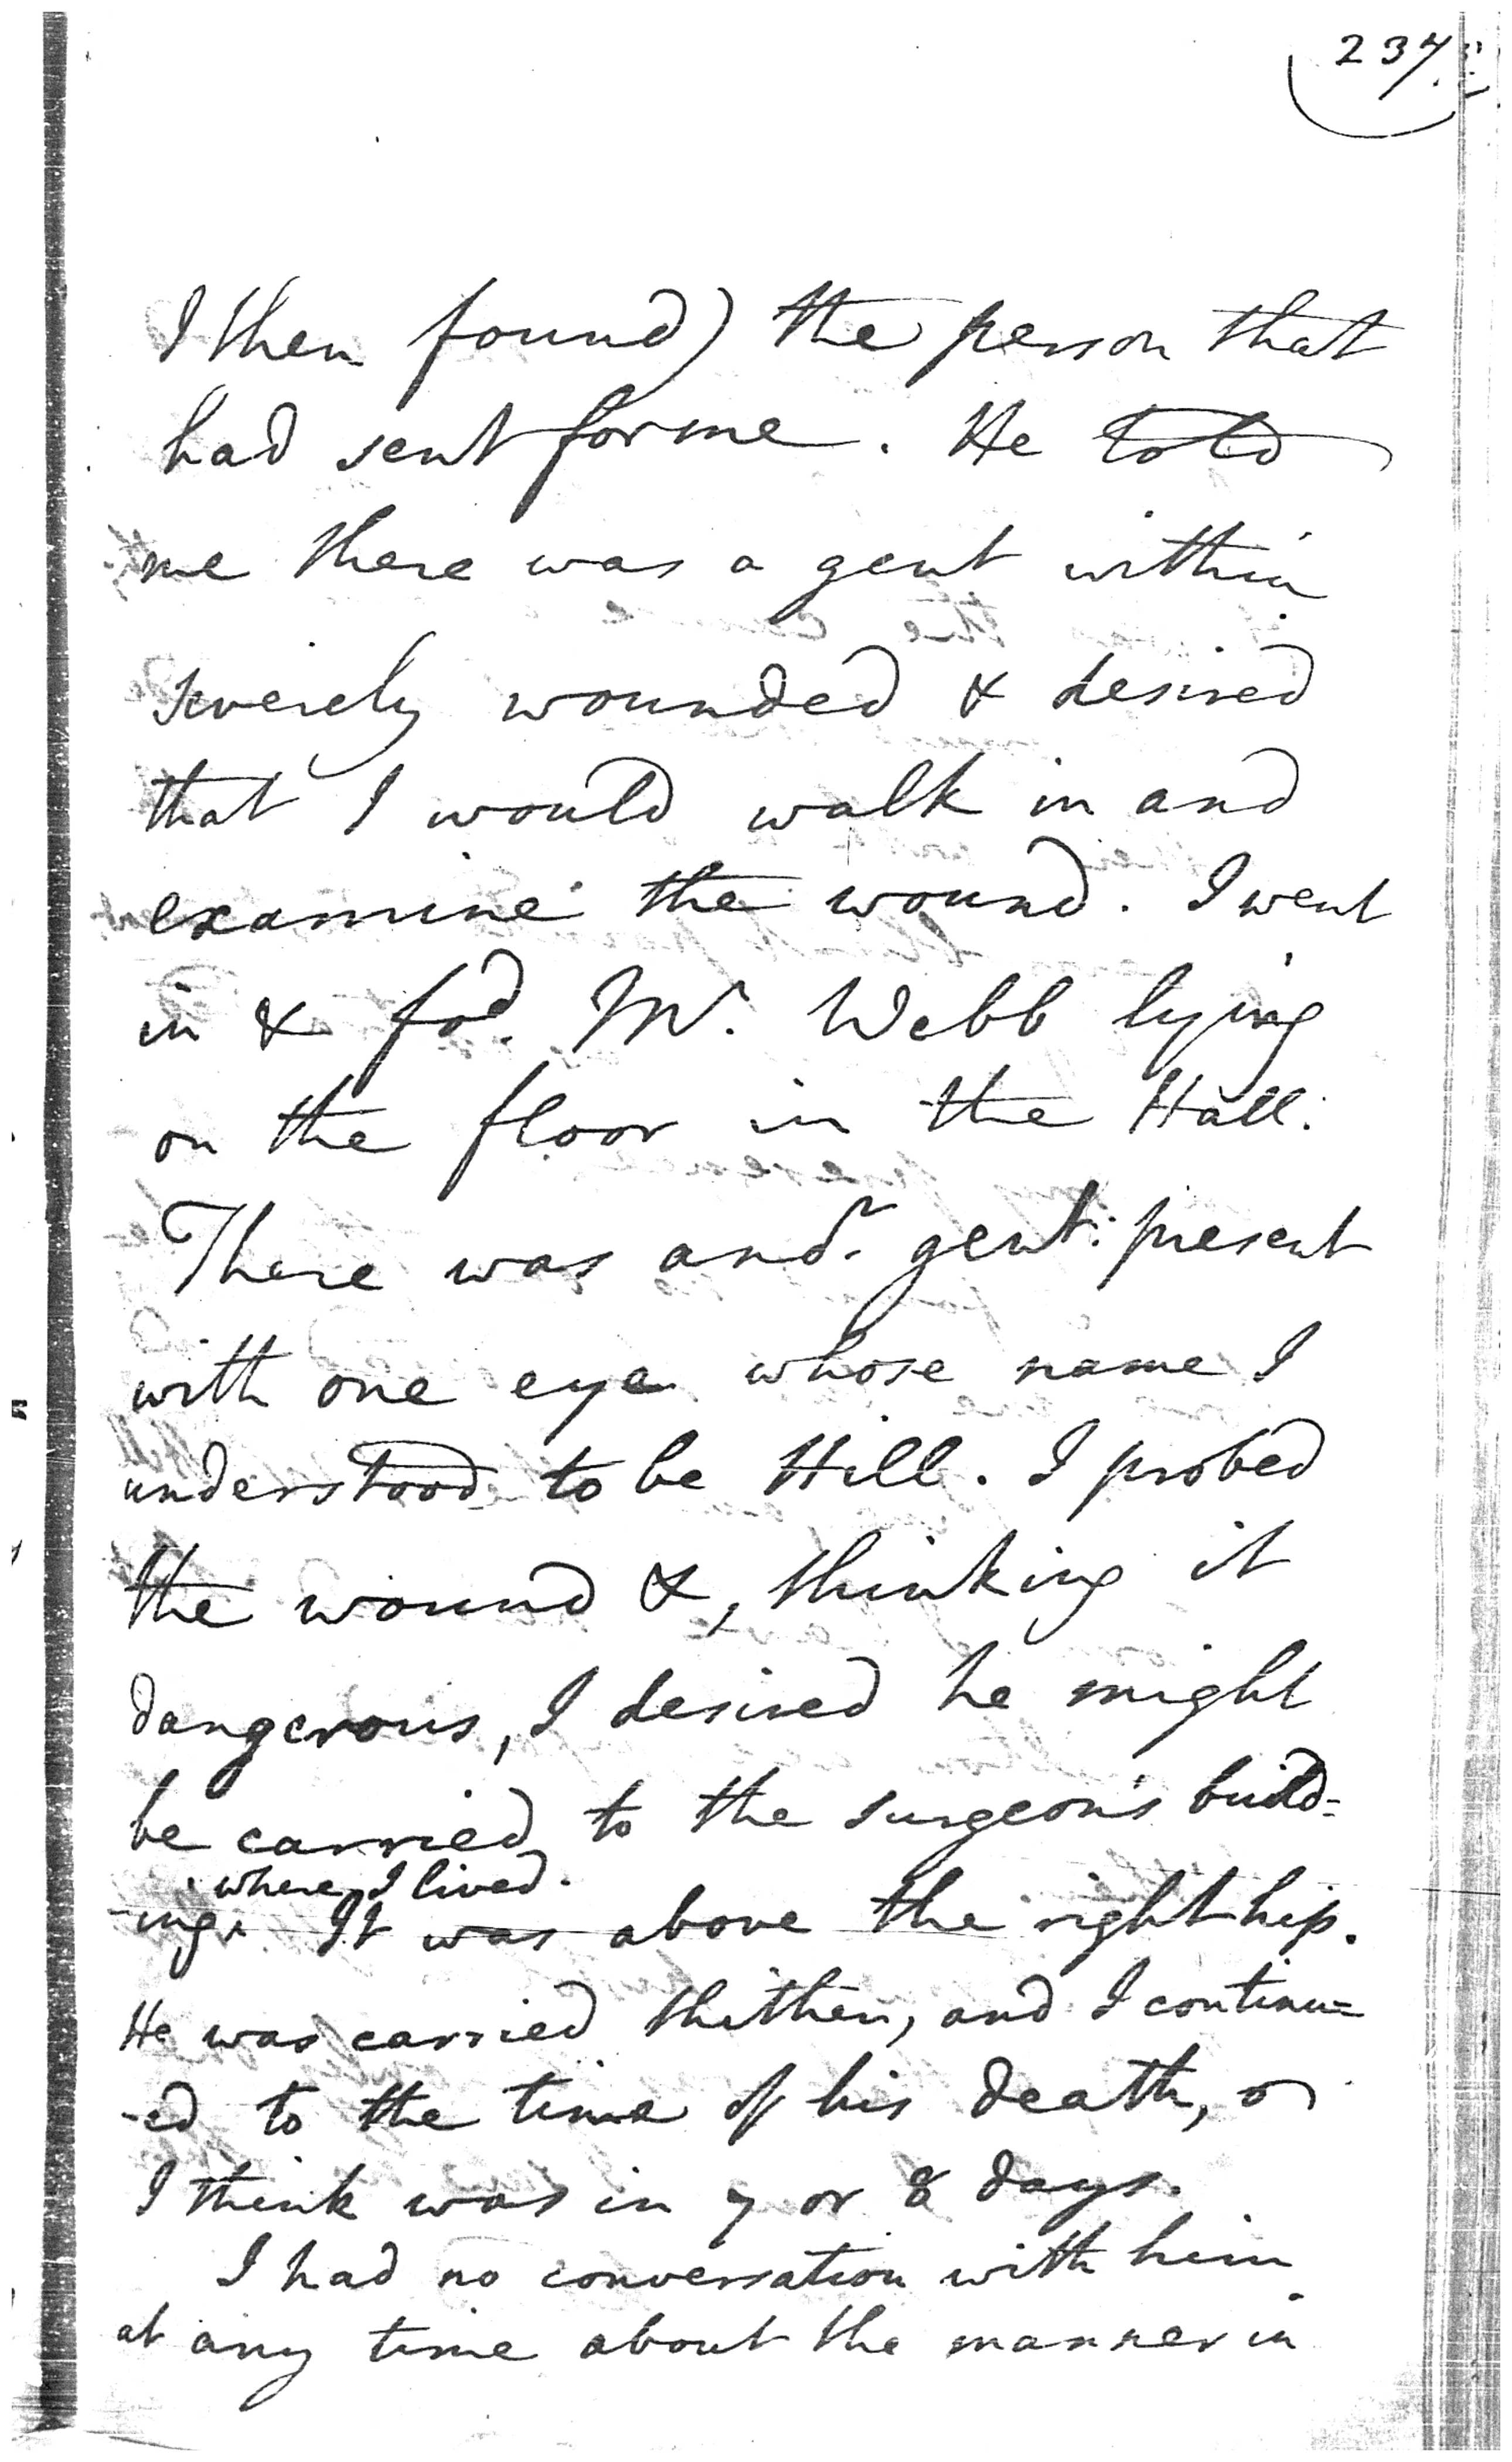 237.
I then found) the person that
had sent for me. He told
me there was a gent within
severely wounded & desired
that I would walk in and
examine the wound. I went
in & fod. Mr. Webb lying
on the floor in the Hall.
There was anor. gent: present
with one eye whose name I
understood to be Hill. I probed
the wound &, thinking it
dangerous, I desired he might
be carried to the surgeon's build=
where I lived.
-ing. It was above the right hip.
He was carried thither, and I continu=
-ed to the time of his death,
I think was in 7 or 8 days.
I had no conversation with him
at any time about the manner in